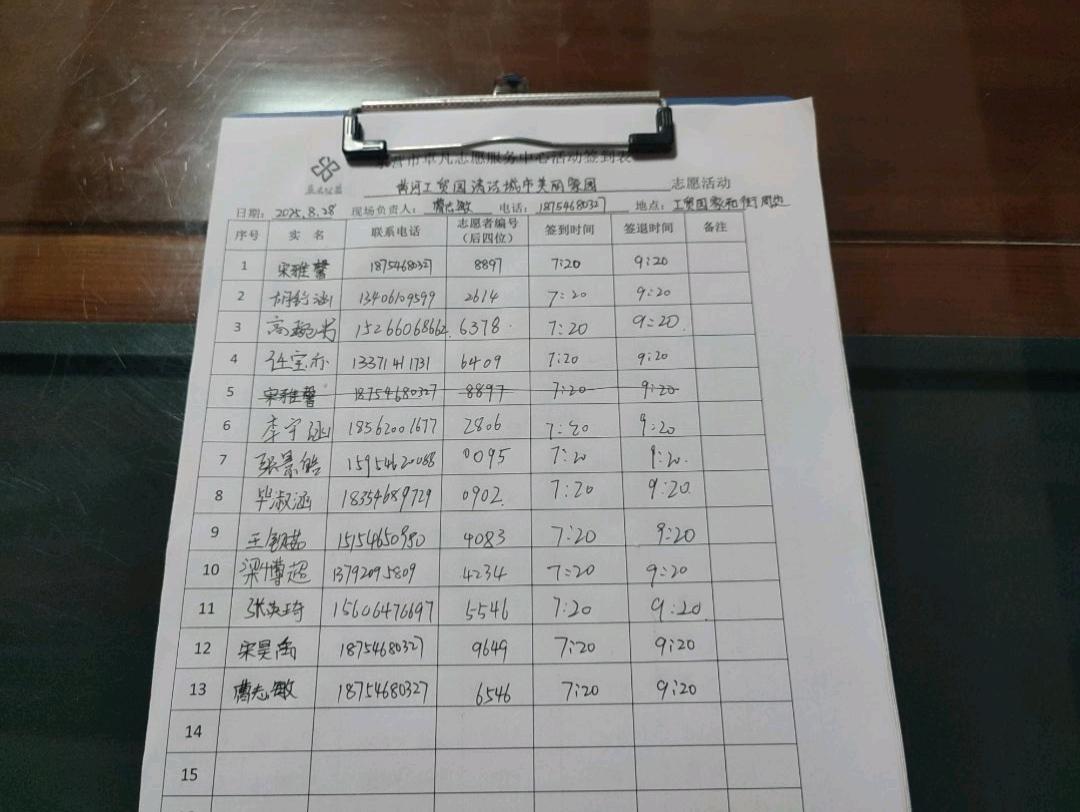 东营市卓凡志愿服务中心活动签到表
卓凡公益
黄河工贸园清洁城市美丽家园 志愿活动
日期: 2025.8.28 现场负责人: 曹志敏 电话: 18754680327 地点: 工贸园家和街周边
序号 实 名 联系电话 志愿者编号(后四位) 签到时间 签退时间 备注
1 宋雅馨 18754680327 8897 7:20 9:20
2 胡钧涵 13406109599 2614 7:20 9:20
3 高 15266068662 6378 7:20 9:20
4 任宝亦 13371411731 6409 7:20 9:20
5 宋雅馨 18754680327 8897 7:20 9:20
6 李宇涵 18562001677 2806 7:20 9:20
7 张景皓 15954620088 0095 7:20 9:20
8 毕淑涵 18354689729 0902 7:20 9:20
9 王 15154650980 4083 7:20 9:20
10 梁博超 13792095809 4234 7:20 9:20
11 张奕琦 15606476697 5546 7:20 9:20
12 宋昊禹 18754680327 9649 7:20 9:20
13 曹志敏 18754680327 6546 7:20 9:20
14
15